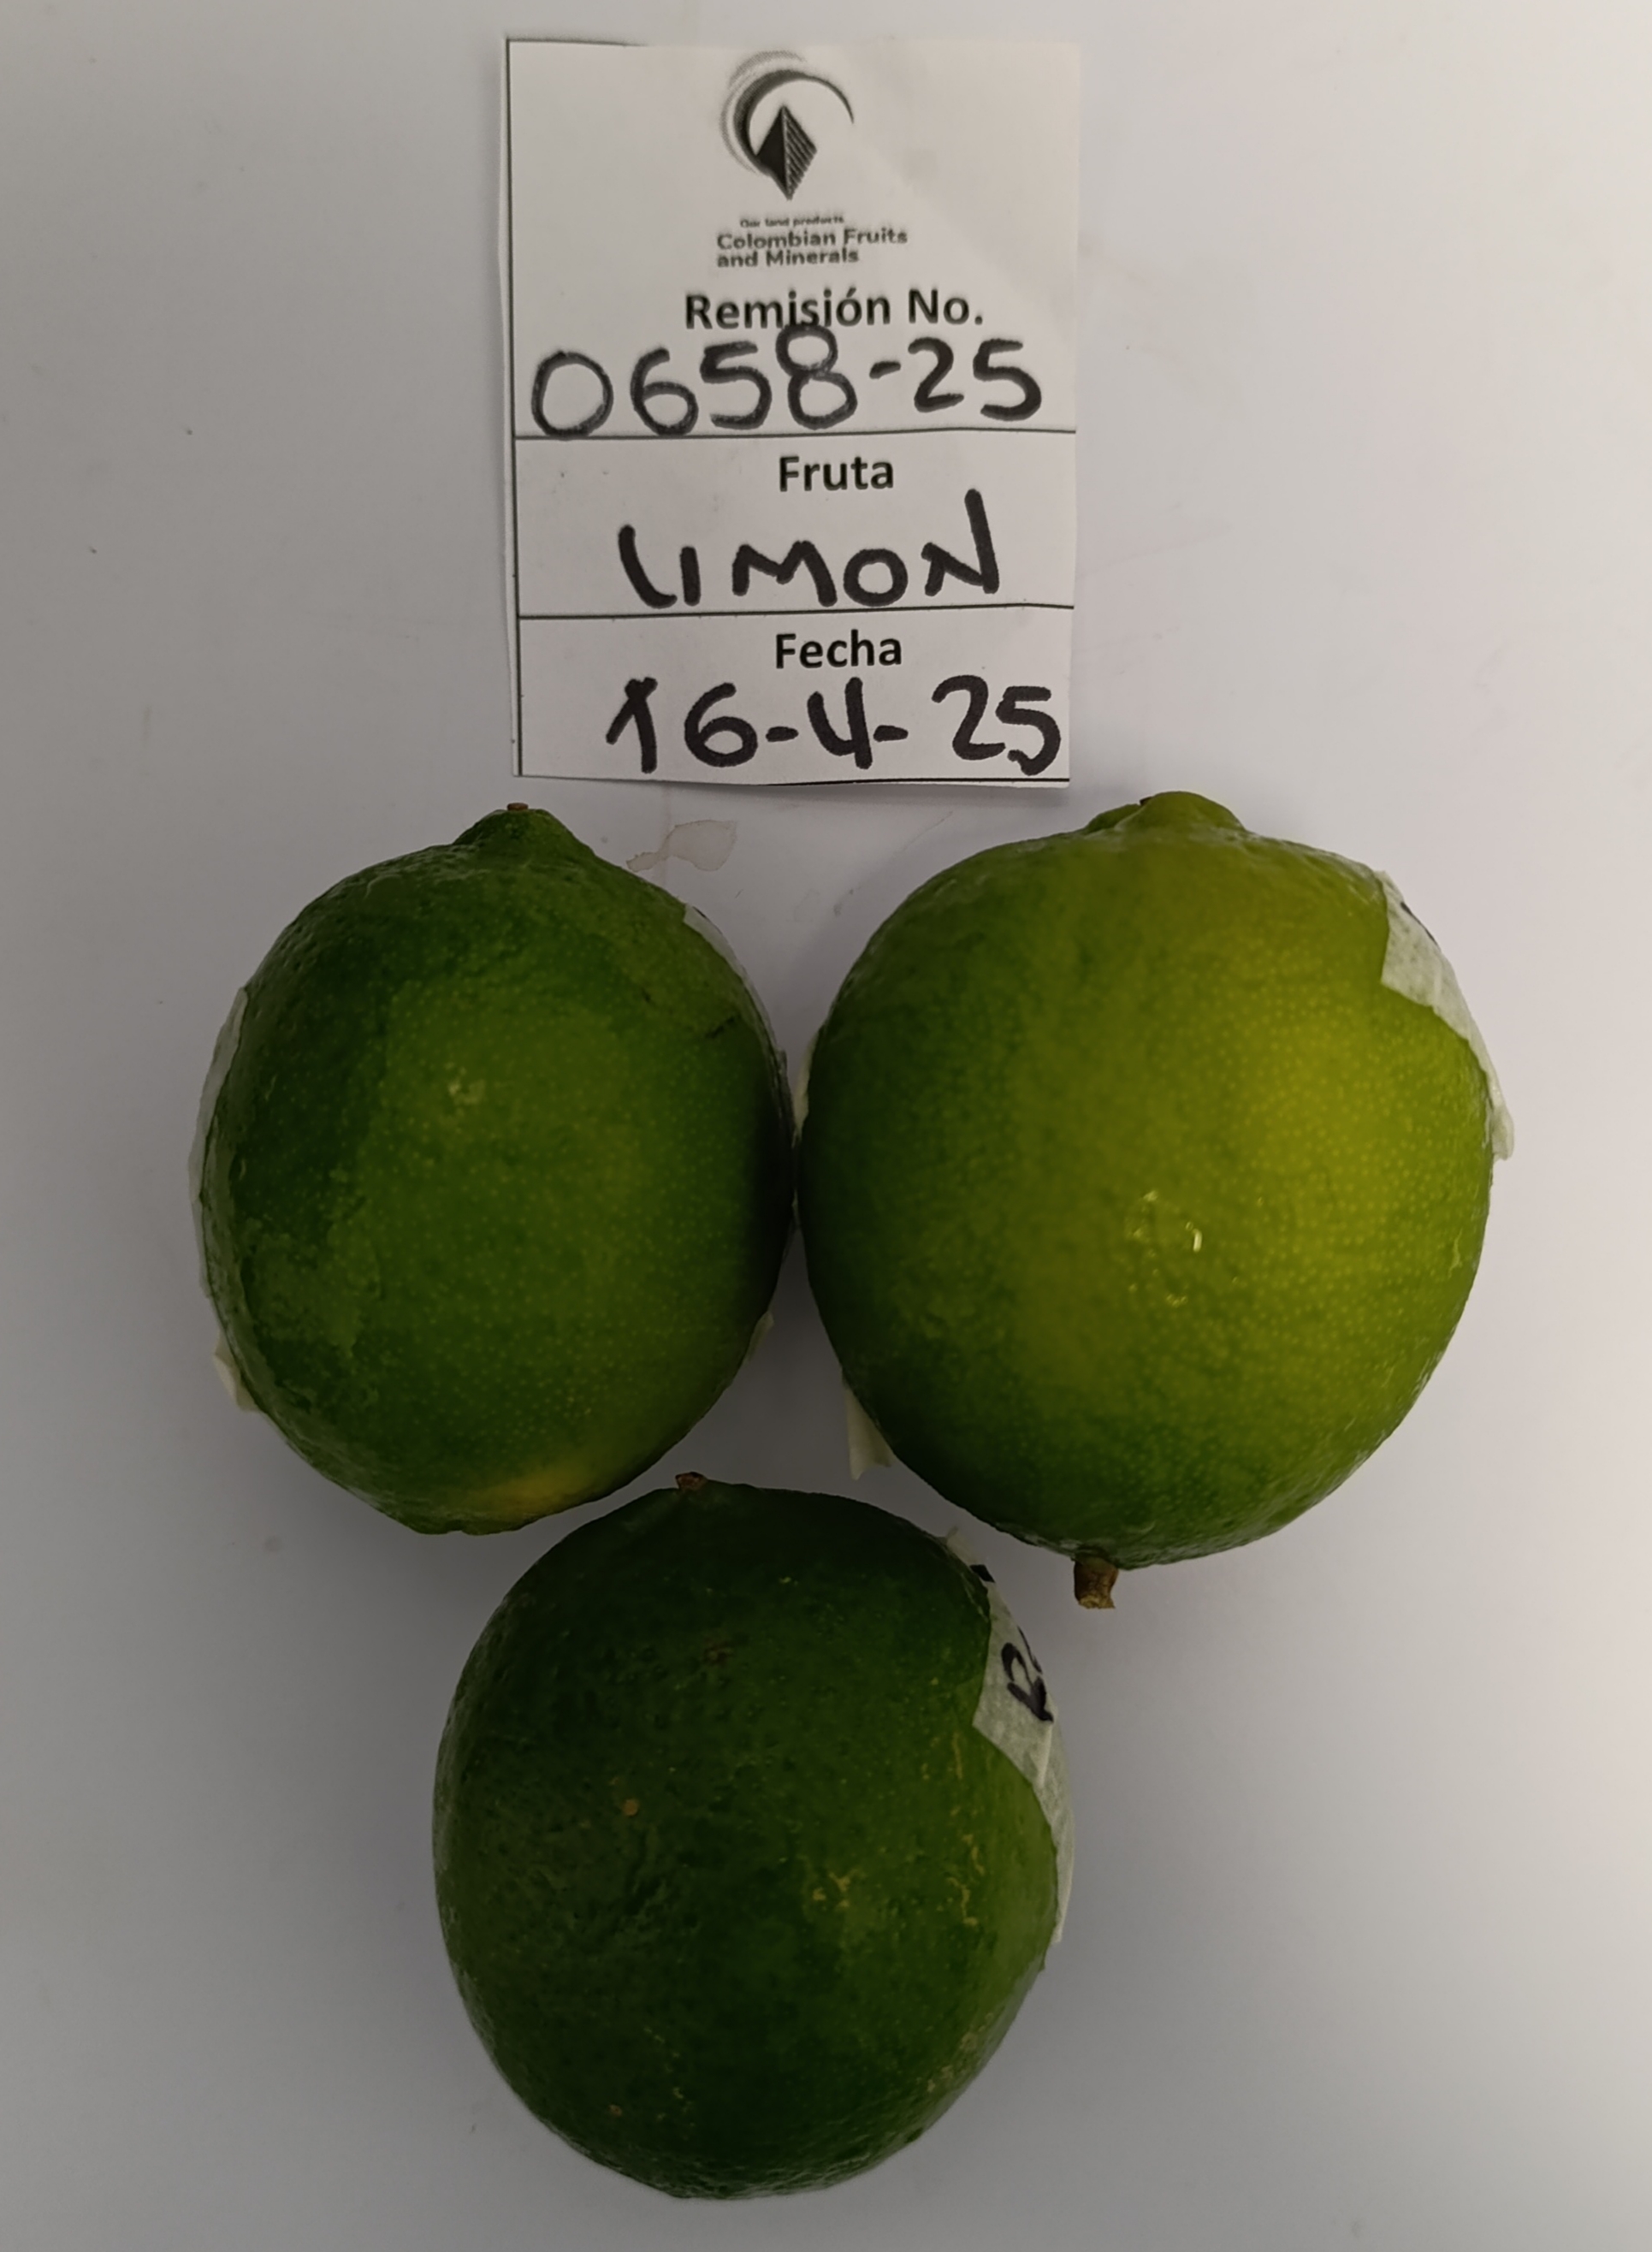 Our land products
Colombian Fruits
and Minerals
Remisión No.
0658-25
Fruta
LIMON
Fecha
16-4-25